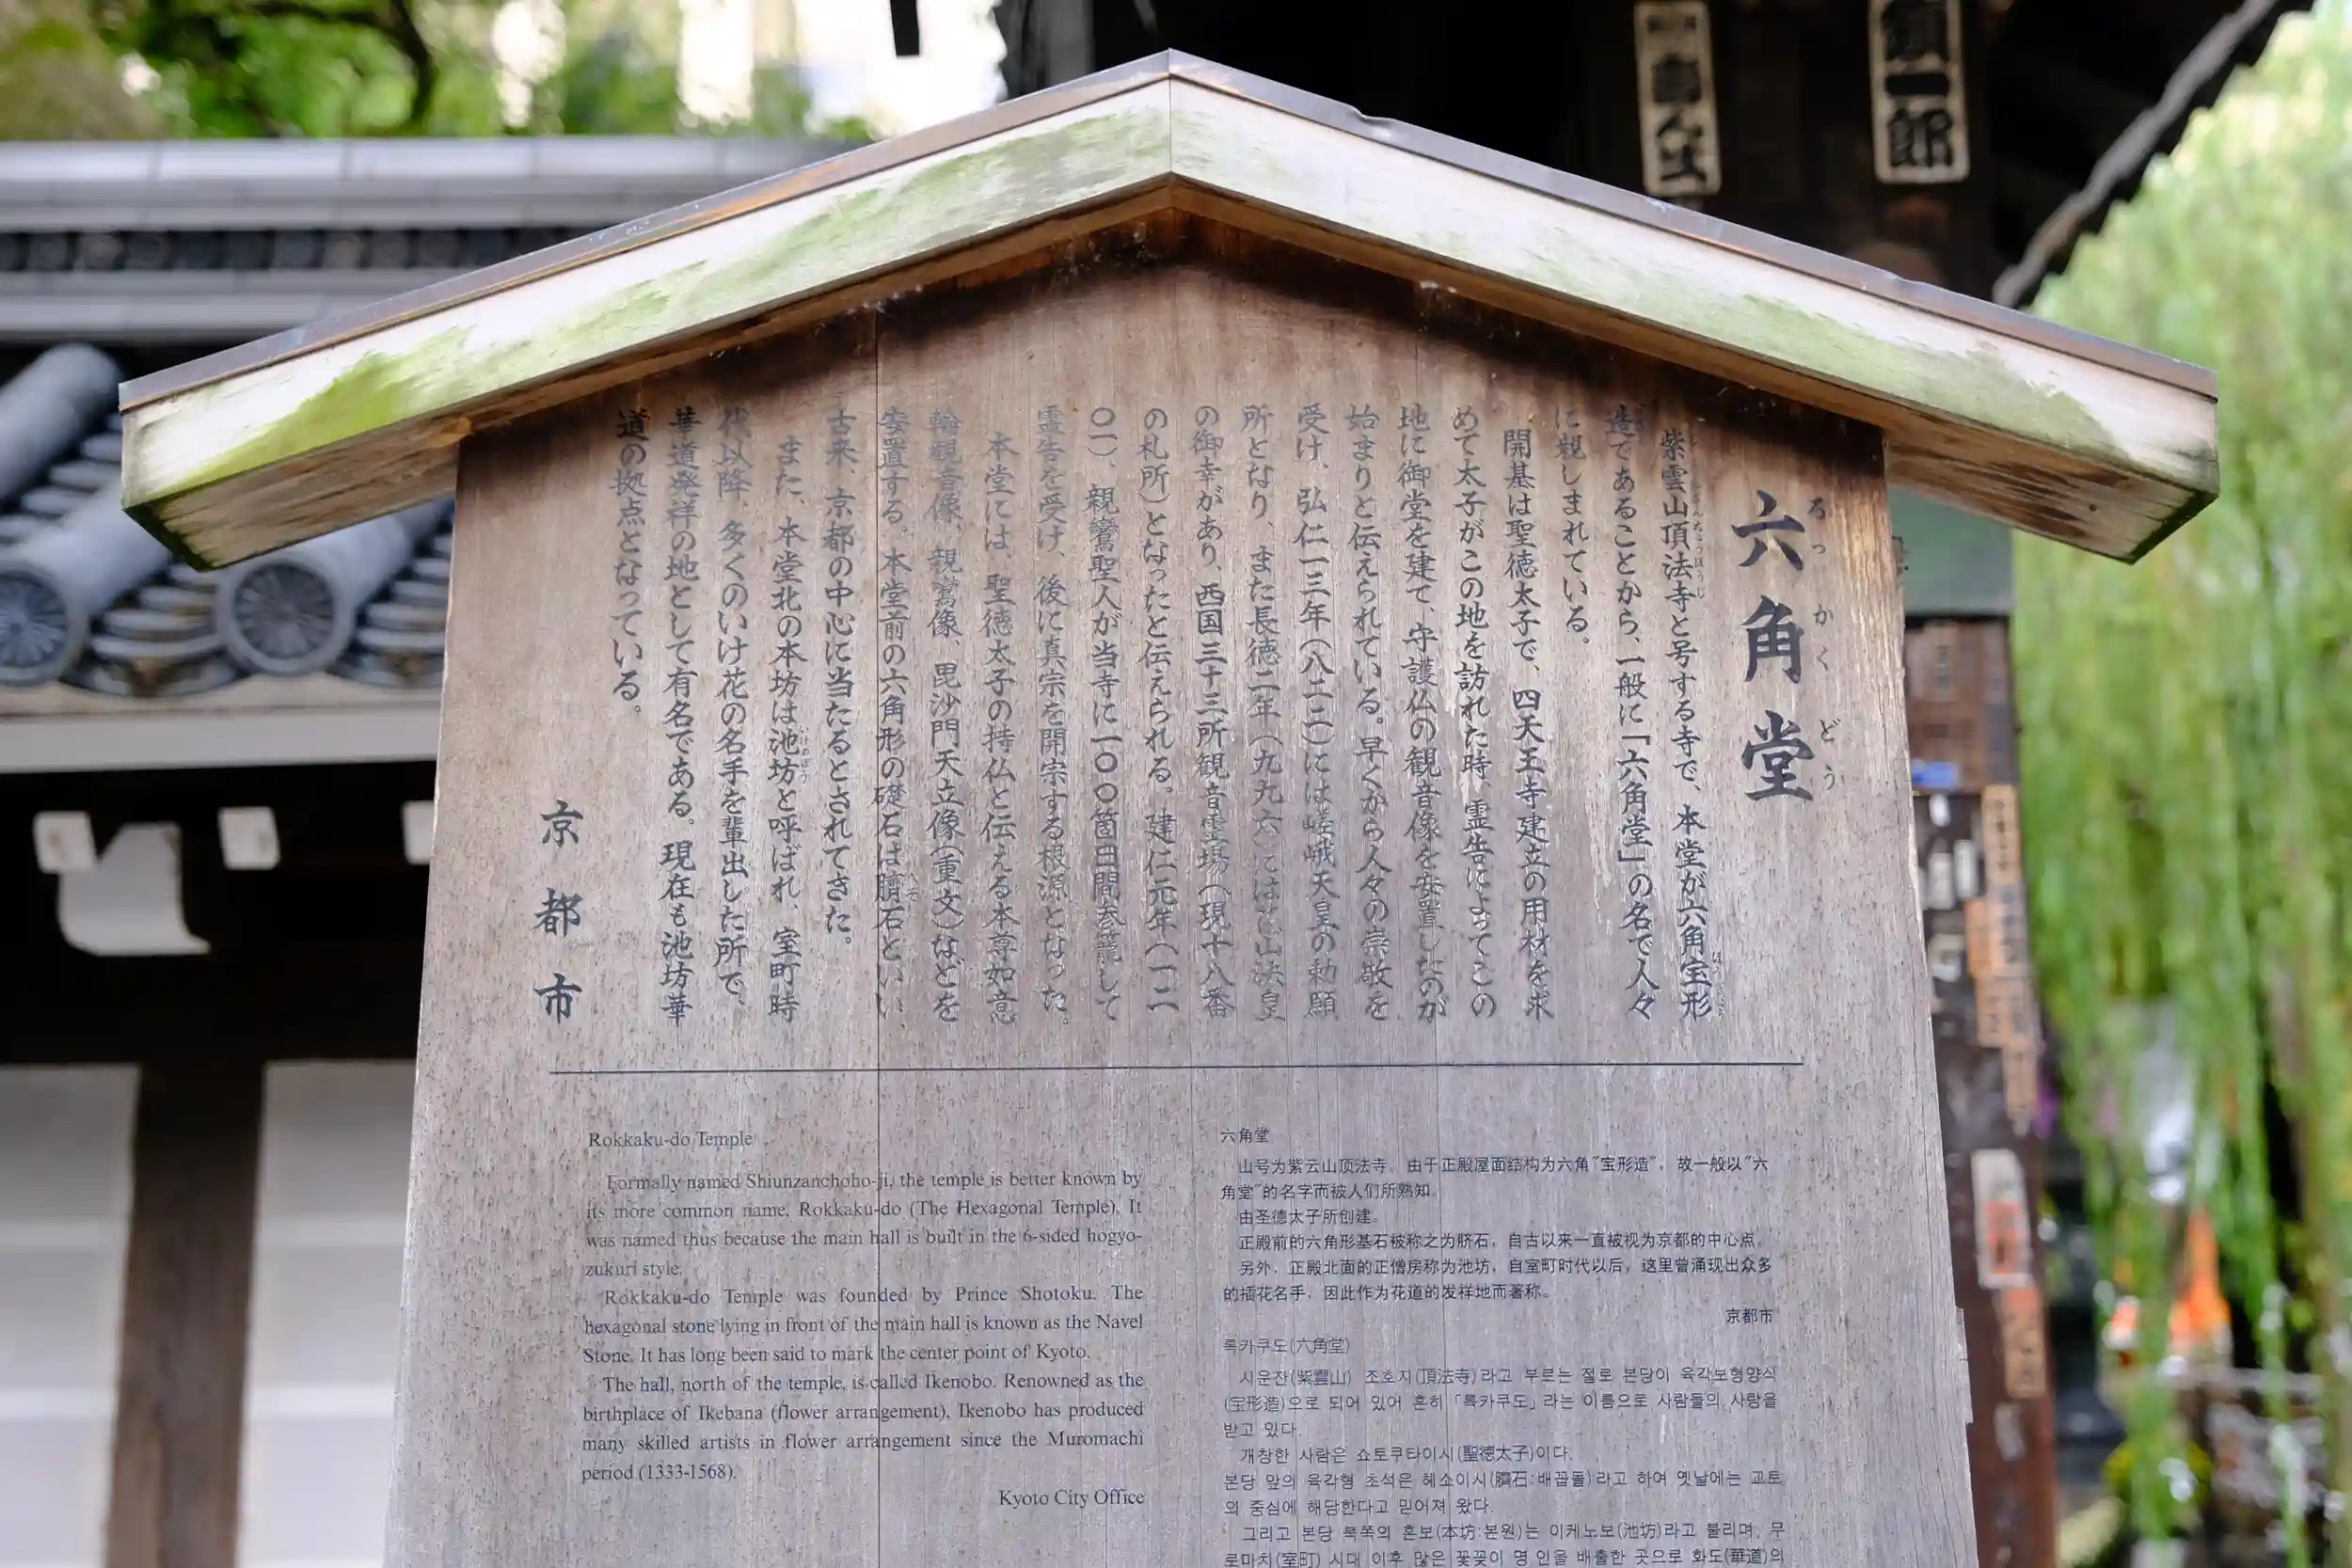 六角堂
ろっかくどう
紫雲山頂法寺と号する寺で、本堂が六角宝形
造であることから、一般に「六角堂」の名で人々
に親しまれている。
開基は聖徳太子で、四天王寺建立の用材を求
めて太子がこの地を訪れた時、霊告によってこの
地に御堂を建て、守護仏の観音像を安置したのが
始まりと伝えられている。早くから人々の崇敬を
受け、弘仁一三年(八二二)には嵯峨天皇の勅願
所となり、また長徳二年(九九六)には花山法皇
の御幸があり、西国三十三所観音霊場(現十八番
の札所)となったと伝えられる。建仁元年(一二
〇一)、親鸞聖人が当寺に一〇〇箇日間参籠して
霊告を受け、後に真宗を開宗する根源となった。
本堂には、聖徳太子の持仏と伝える本尊如意
輪観音像、親鸞像、毘沙門天立像(重文)などを
安置する。本堂前の六角形の礎石は臍石といい、
古来、京都の中心に当たるとされてきた。
また、本堂北の本坊は池坊と呼ばれ、室町時
代以降、多くのいけ花の名手を輩出した所で、
華道発祥の地として有名である。現在も池坊華
道の拠点となっている。
京都市
Rokkaku-do Temple
Formally named Shiunzanchoho-ji, the temple is better known by
its more common name, Rokkaku-do (The Hexagonal Temple). It
was named thus because the main hall is built in the 6-sided hogyo-
zukuri style.
Rokkaku-do Temple was founded by Prince Shotoku. The
hexagonal stone lying in front of the main hall is known as the Navel
Stone. It has long been said to mark the center point of Kyoto.
The hall, north of the temple, is called Ikenobo. Renowned as the
birthplace of Ikebana (flower arrangement), Ikenobo has produced
many skilled artists in flower arrangement since the Muromachi
period (1333-1568).
Kyoto City Office
六角堂
山号为紫云山顶法寺。由于正殿屋面结构为六角"宝形造"，故一般以"六
角堂"的名字而被人们所熟知。
由圣德太子所创建。
正殿前的六角形基石被称之为脐石，自古以来一直被视为京都的中心点。
另外，正殿北面的正僧房称为池坊，自室町时代以后，这里曾涌现出众多
的插花名手，因此作为花道的发祥地而著称。
京都市
록카쿠도(六角堂)
시운잔(紫雲山) 조호지(頂法寺)라고 부르는 절로 본당이 육각보형양식
(宝形造)으로 되어 있어 흔히 「록카쿠도」라는 이름으로 사람들의 사랑을
받고 있다.
개창한 사람은 쇼토쿠타이시(聖徳太子)이다.
본당 앞의 육각형 초석은 헤소이시(臍石:배꼽돌)라고 하여 옛날에는 교토
의 중심에 해당한다고 믿어져 왔다.
그리고 본당 북쪽의 혼보(本坊:본원)는 이케노보(池坊)라고 불리며, 무
로마치(室町) 시대 이후 많은 꽃꽂이 명인을 배출한 곳으로 화도(華道)의